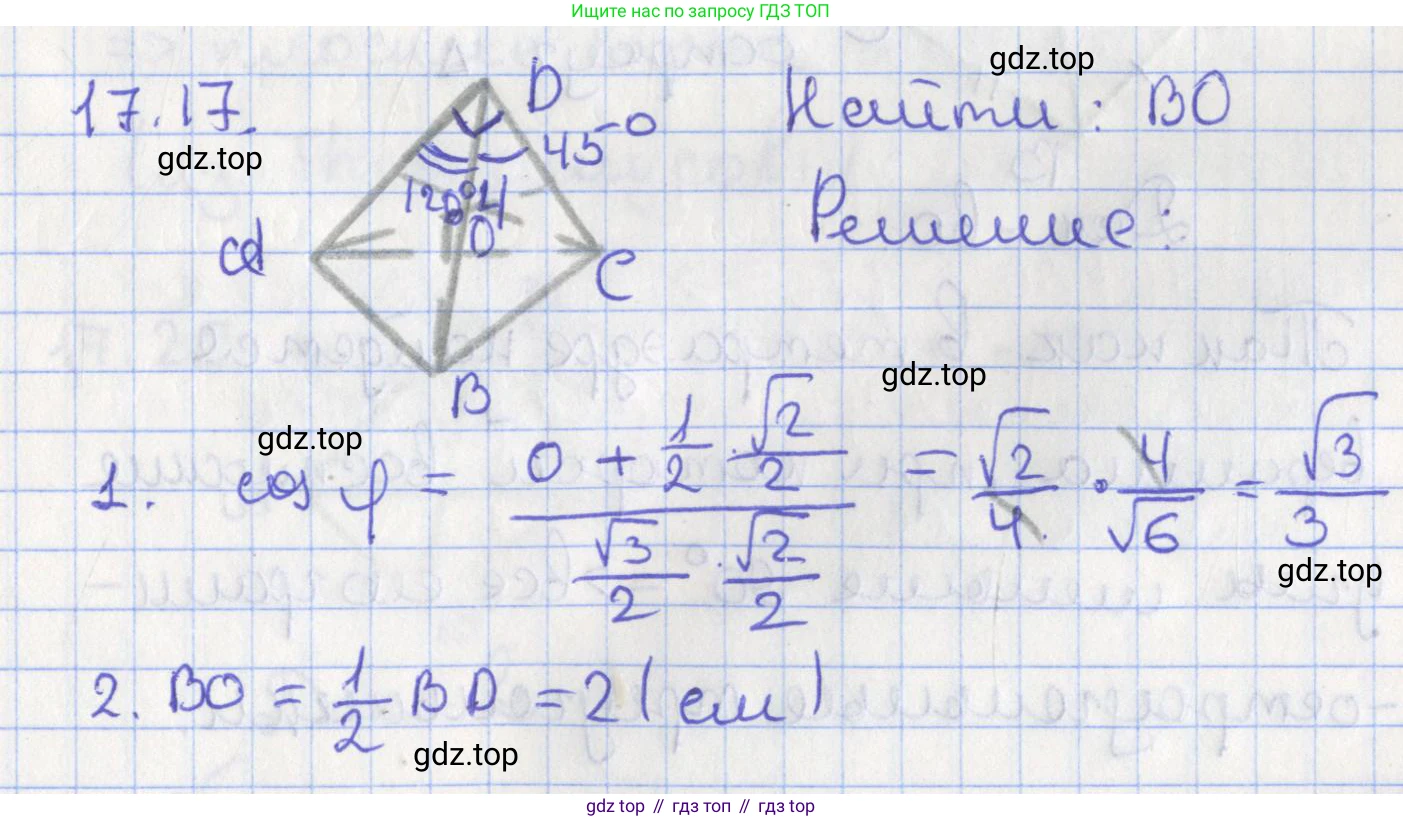 Ищите нас по запросу ГДЗ ТОП
17.17.
gdz.top
D
45°
120°
O
C
B
Найти: BO
gdz.top
Решение:
gdz.top
gdz.top
1. cos φ = (0 + 1/2 · √2/2) / (√3/2 · √2/2) = √2/4 · 4/√6 = √3/3
gdz.top
2. BO = 1/2 BD = 2 (см)
gdz.top
gdz top // гдз топ // gdz top